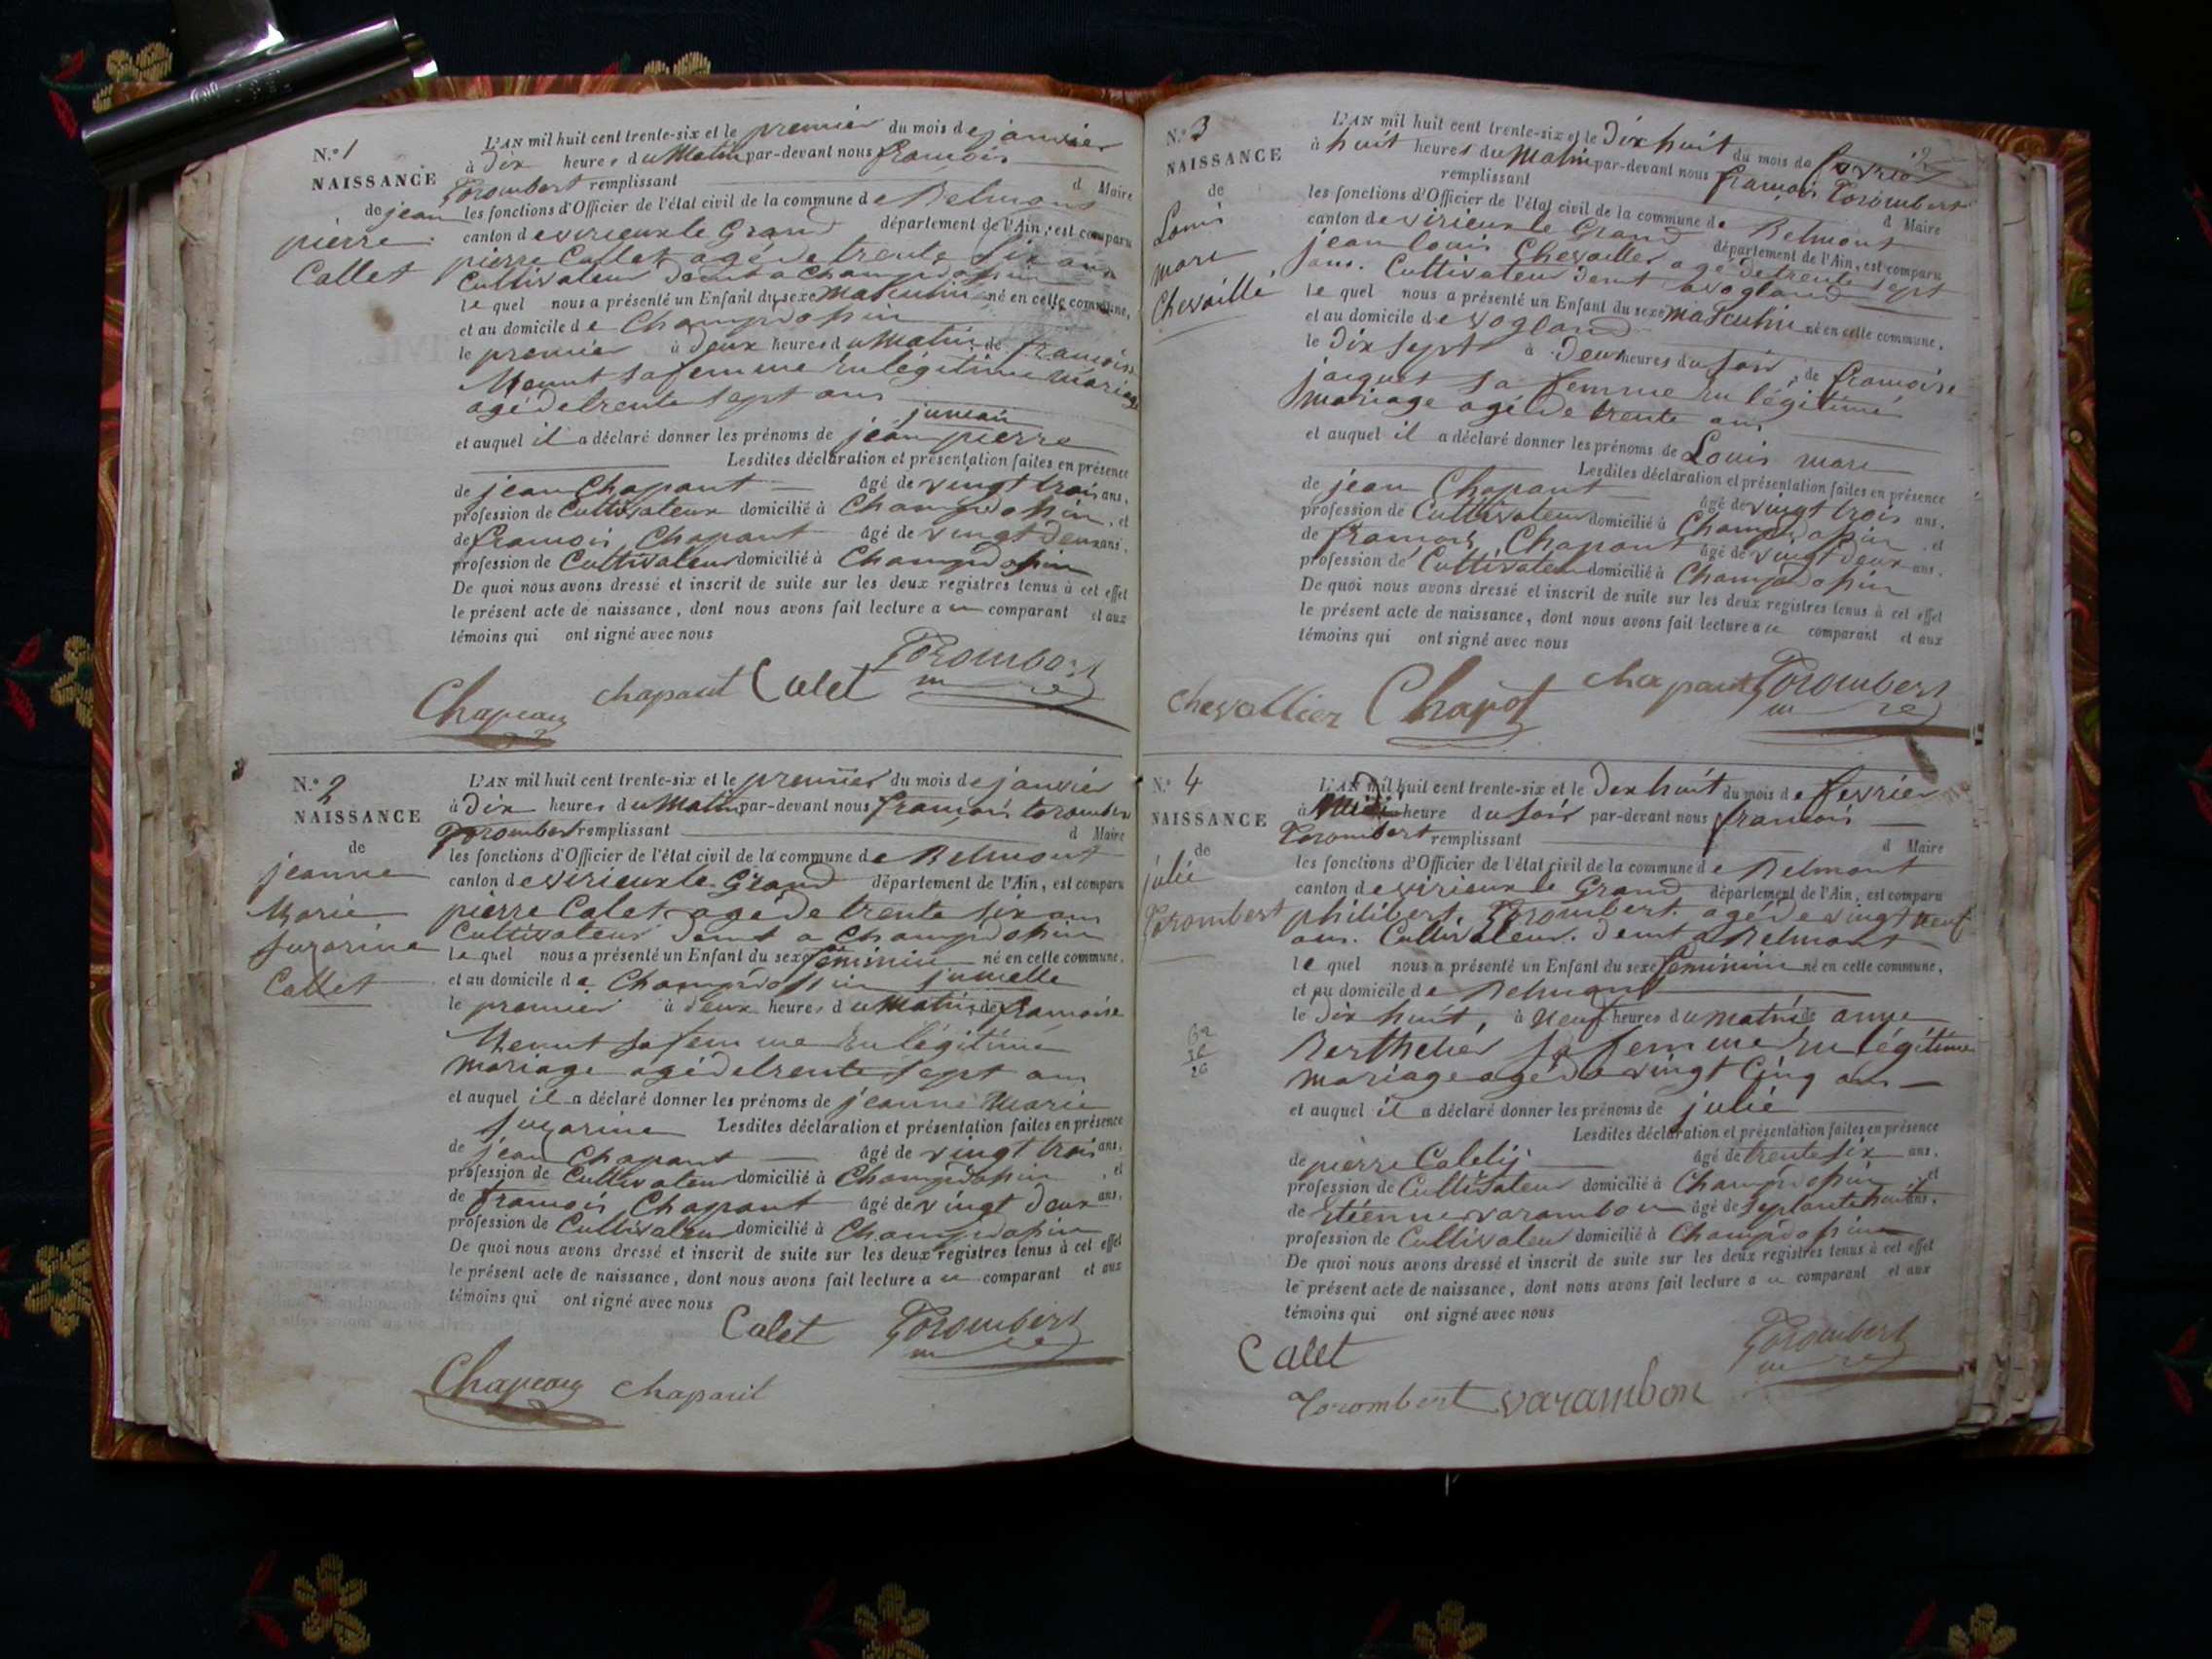 N.° 1
NAISSANCE
de jean
pierre
Callet
L'AN mil huit cent trente-six et le premier du mois de janvier
à Dix heures du Matin par-devant nous françois
Torombert remplissant d Maire
les fonctions d'Officier de l'état civil de la commune de Belmont
canton de virieux le Grand département de l'Ain, est comparu
pierre Callet agé de trente six ans
Cultivateur demt a Champdossin
le quel nous a présenté un Enfant du sexe masculin né en cette commune,
et au domicile de Champdossin
le premier à deux heures du Matin, de françoise
sa femme en légitime mariage
agé de trente sept ans
jumeau
et auquel il a déclaré donner les prénoms de jean pierre
Lesdites déclaration et présentation faites en présence
de jean Chapant âgé de vingt trois ans,
profession de Cultivateur domicilié à Champdossin, et
de françois Chapant âgé de vingt deux ans,
profession de Cultivateur domicilié à Champdossin
De quoi nous avons dressé et inscrit de suite sur les deux registres tenus à cet effet
le présent acte de naissance, dont nous avons fait lecture a u comparant et aux
témoins qui ont signé avec nous
Torombert
chapant Calet
N.° 2
NAISSANCE
de
jeanne
Marie
suzarine
Callet
L'AN mil huit cent trente-six et le premier du mois de janvier
à Dix heures du Matin par-devant nous françois torombert
Torombert remplissant d Maire
les fonctions d'Officier de l'état civil de la commune de Belmont
canton de virieux le Grand département de l'Ain, est comparu
pierre Calet agé de trente six ans
Cultivateur demt a Champdossin
le quel nous a présenté un Enfant du sexe feminin né en cette commune,
et au domicile de Champdossin jumelle
le premier à deux heures du Matin, de françoise
sa femme en légitime
mariage agé de trente sept ans
et auquel il a déclaré donner les prénoms de jeanne Marie
suzarine Lesdites déclaration et présentation faites en présence
de jean Chapant âgé de vingt trois ans,
profession de Cultivateur domicilié à Champdossin, et
de françois Chapant âgé de vingt deux ans,
profession de Cultivateur domicilié à Champdossin
De quoi nous avons dressé et inscrit de suite sur les deux registres tenus à cet effet
le présent acte de naissance, dont nous avons fait lecture a u comparant et aux
témoins qui ont signé avec nous
Calet Torombert
N.° 3
NAISSANCE
de
Louis
marc
Chevaillé
L'AN mil huit cent trente-six et le Dix huit du mois de fevrier
à huit heures du Matin par-devant nous françois Torombert
remplissant d Maire
les fonctions d'Officier de l'état civil de la commune de Belmont
canton de virieux le Grand département de l'Ain, est comparu
jean louis Chevallier agé de trente sept
ans. Cultivateur demt a vogland
le quel nous a présenté un Enfant du sexe masculin né en cette commune,
et au domicile de vogland
le Dix sept à Deux heures du soir, de françoise
jacquet sa femme en légitime
mariage agé de trente ans
et auquel il a déclaré donner les prénoms de Louis marc
Lesdites déclaration et présentation faites en présence
de jean Chapant âgé de vingt trois ans,
profession de Cultivateur domicilié à Champdossin, et
de françois Chapant âgé de vingt deux ans,
profession de Cultivateur domicilié à Champdossin
De quoi nous avons dressé et inscrit de suite sur les deux registres tenus à cet effet
le présent acte de naissance, dont nous avons fait lecture a u comparant et aux
témoins qui ont signé avec nous
chevallier Chapot chapant Torombert
N.° 4
NAISSANCE
de
julié
Torombert
L'AN mil huit cent trente-six et le Dix huit du mois de fevrier
à heure du soir par-devant nous françois
Torombert remplissant d Maire
les fonctions d'Officier de l'état civil de la commune de Belmont
canton de virieux le Grand département de l'Ain, est comparu
philibert Torombert agé de vingt neuf
ans. Cultivateur. demt a Belmont
le quel nous a présenté un Enfant du sexe feminin né en cette commune,
et au domicile de Belmont
le Dix huit, à Neuf heures du matin de anne
Berthelier sa femme en légitime
mariage agé de vingt Cinq ans
et auquel il a déclaré donner les prénoms de julié
Lesdites déclaration et présentation faites en présence
de pierre âgé de trente six ans,
profession de Cultivateur domicilié à Champdossin, et
de Etienne varambon âgé de septante huit ans,
profession de Cultivateur domicilié à Champdossin
De quoi nous avons dressé et inscrit de suite sur les deux registres tenus à cet effet
le présent acte de naissance, dont nous avons fait lecture a u comparant et aux
témoins qui ont signé avec nous
Calet Torombert
Torombert varambon